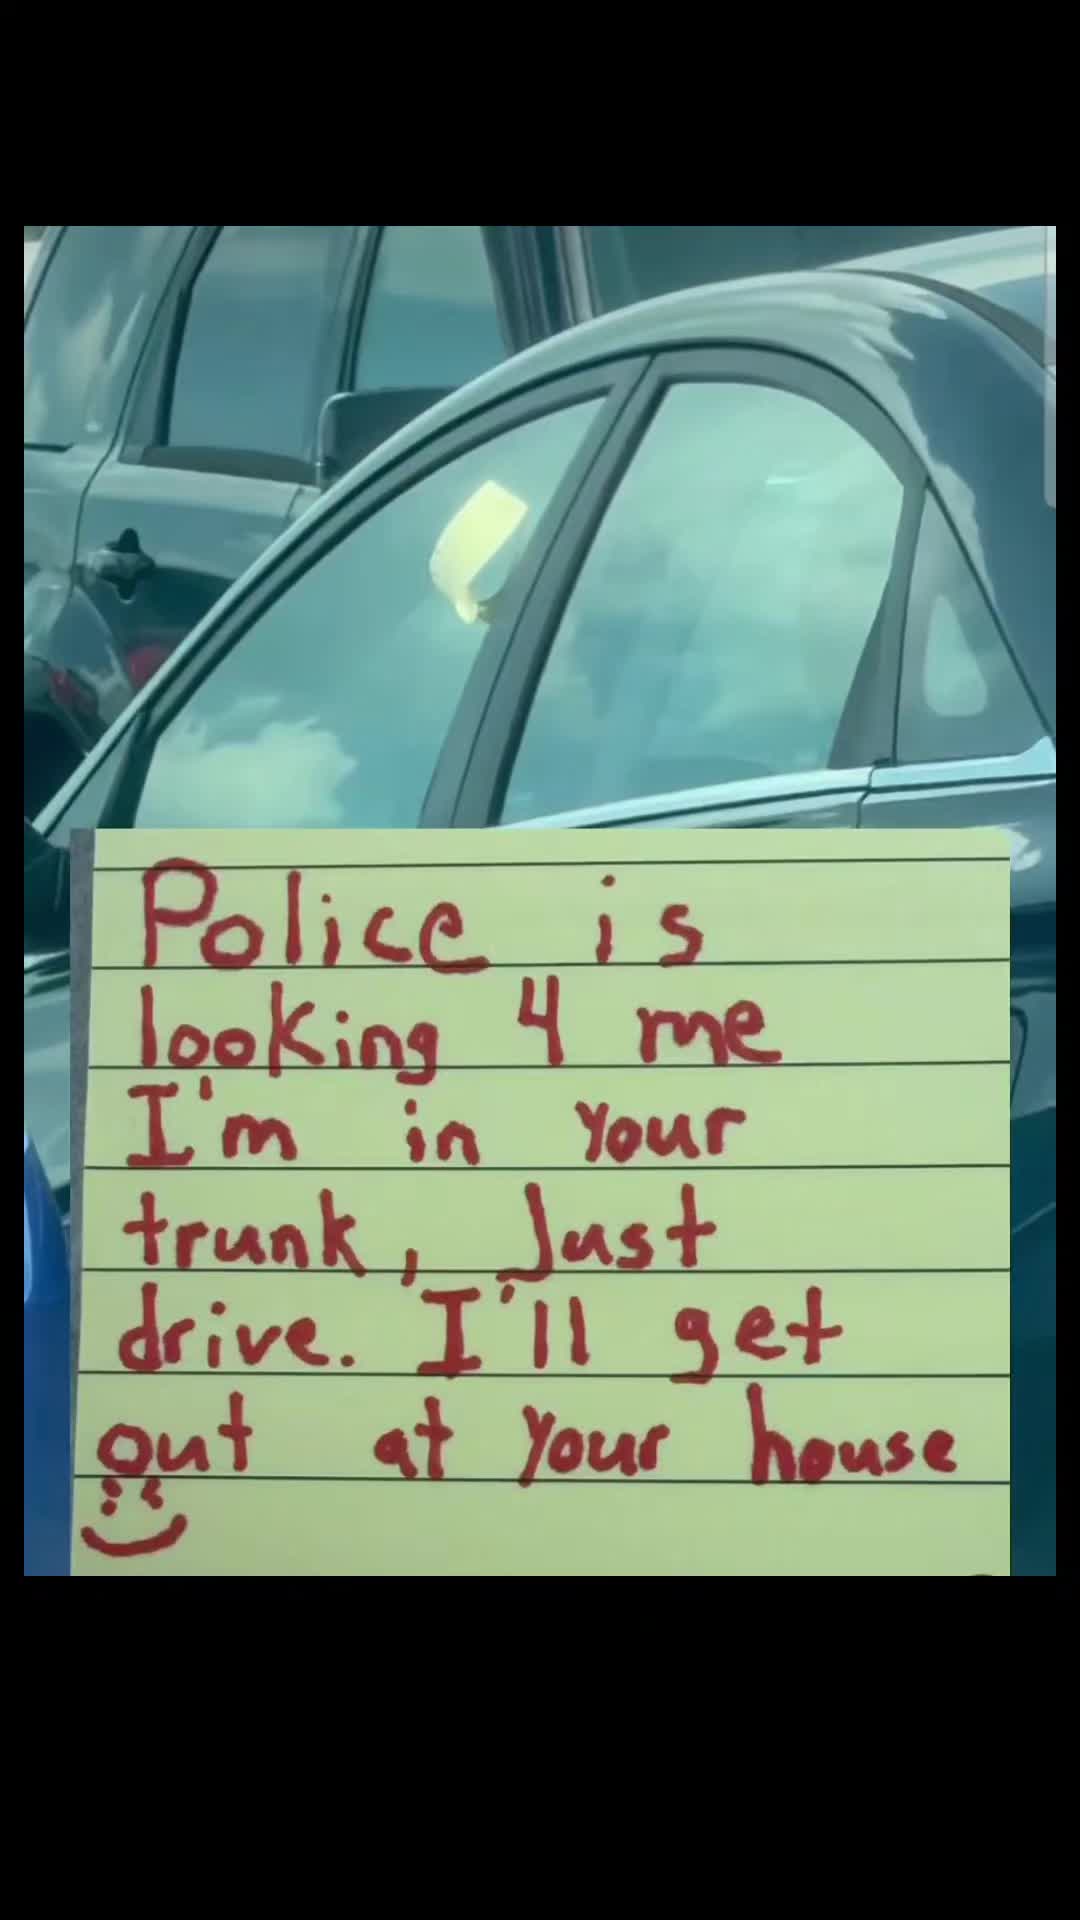 Police is
looking 4 me
I'm in your
trunk, Just
drive. I'll get
out at your house